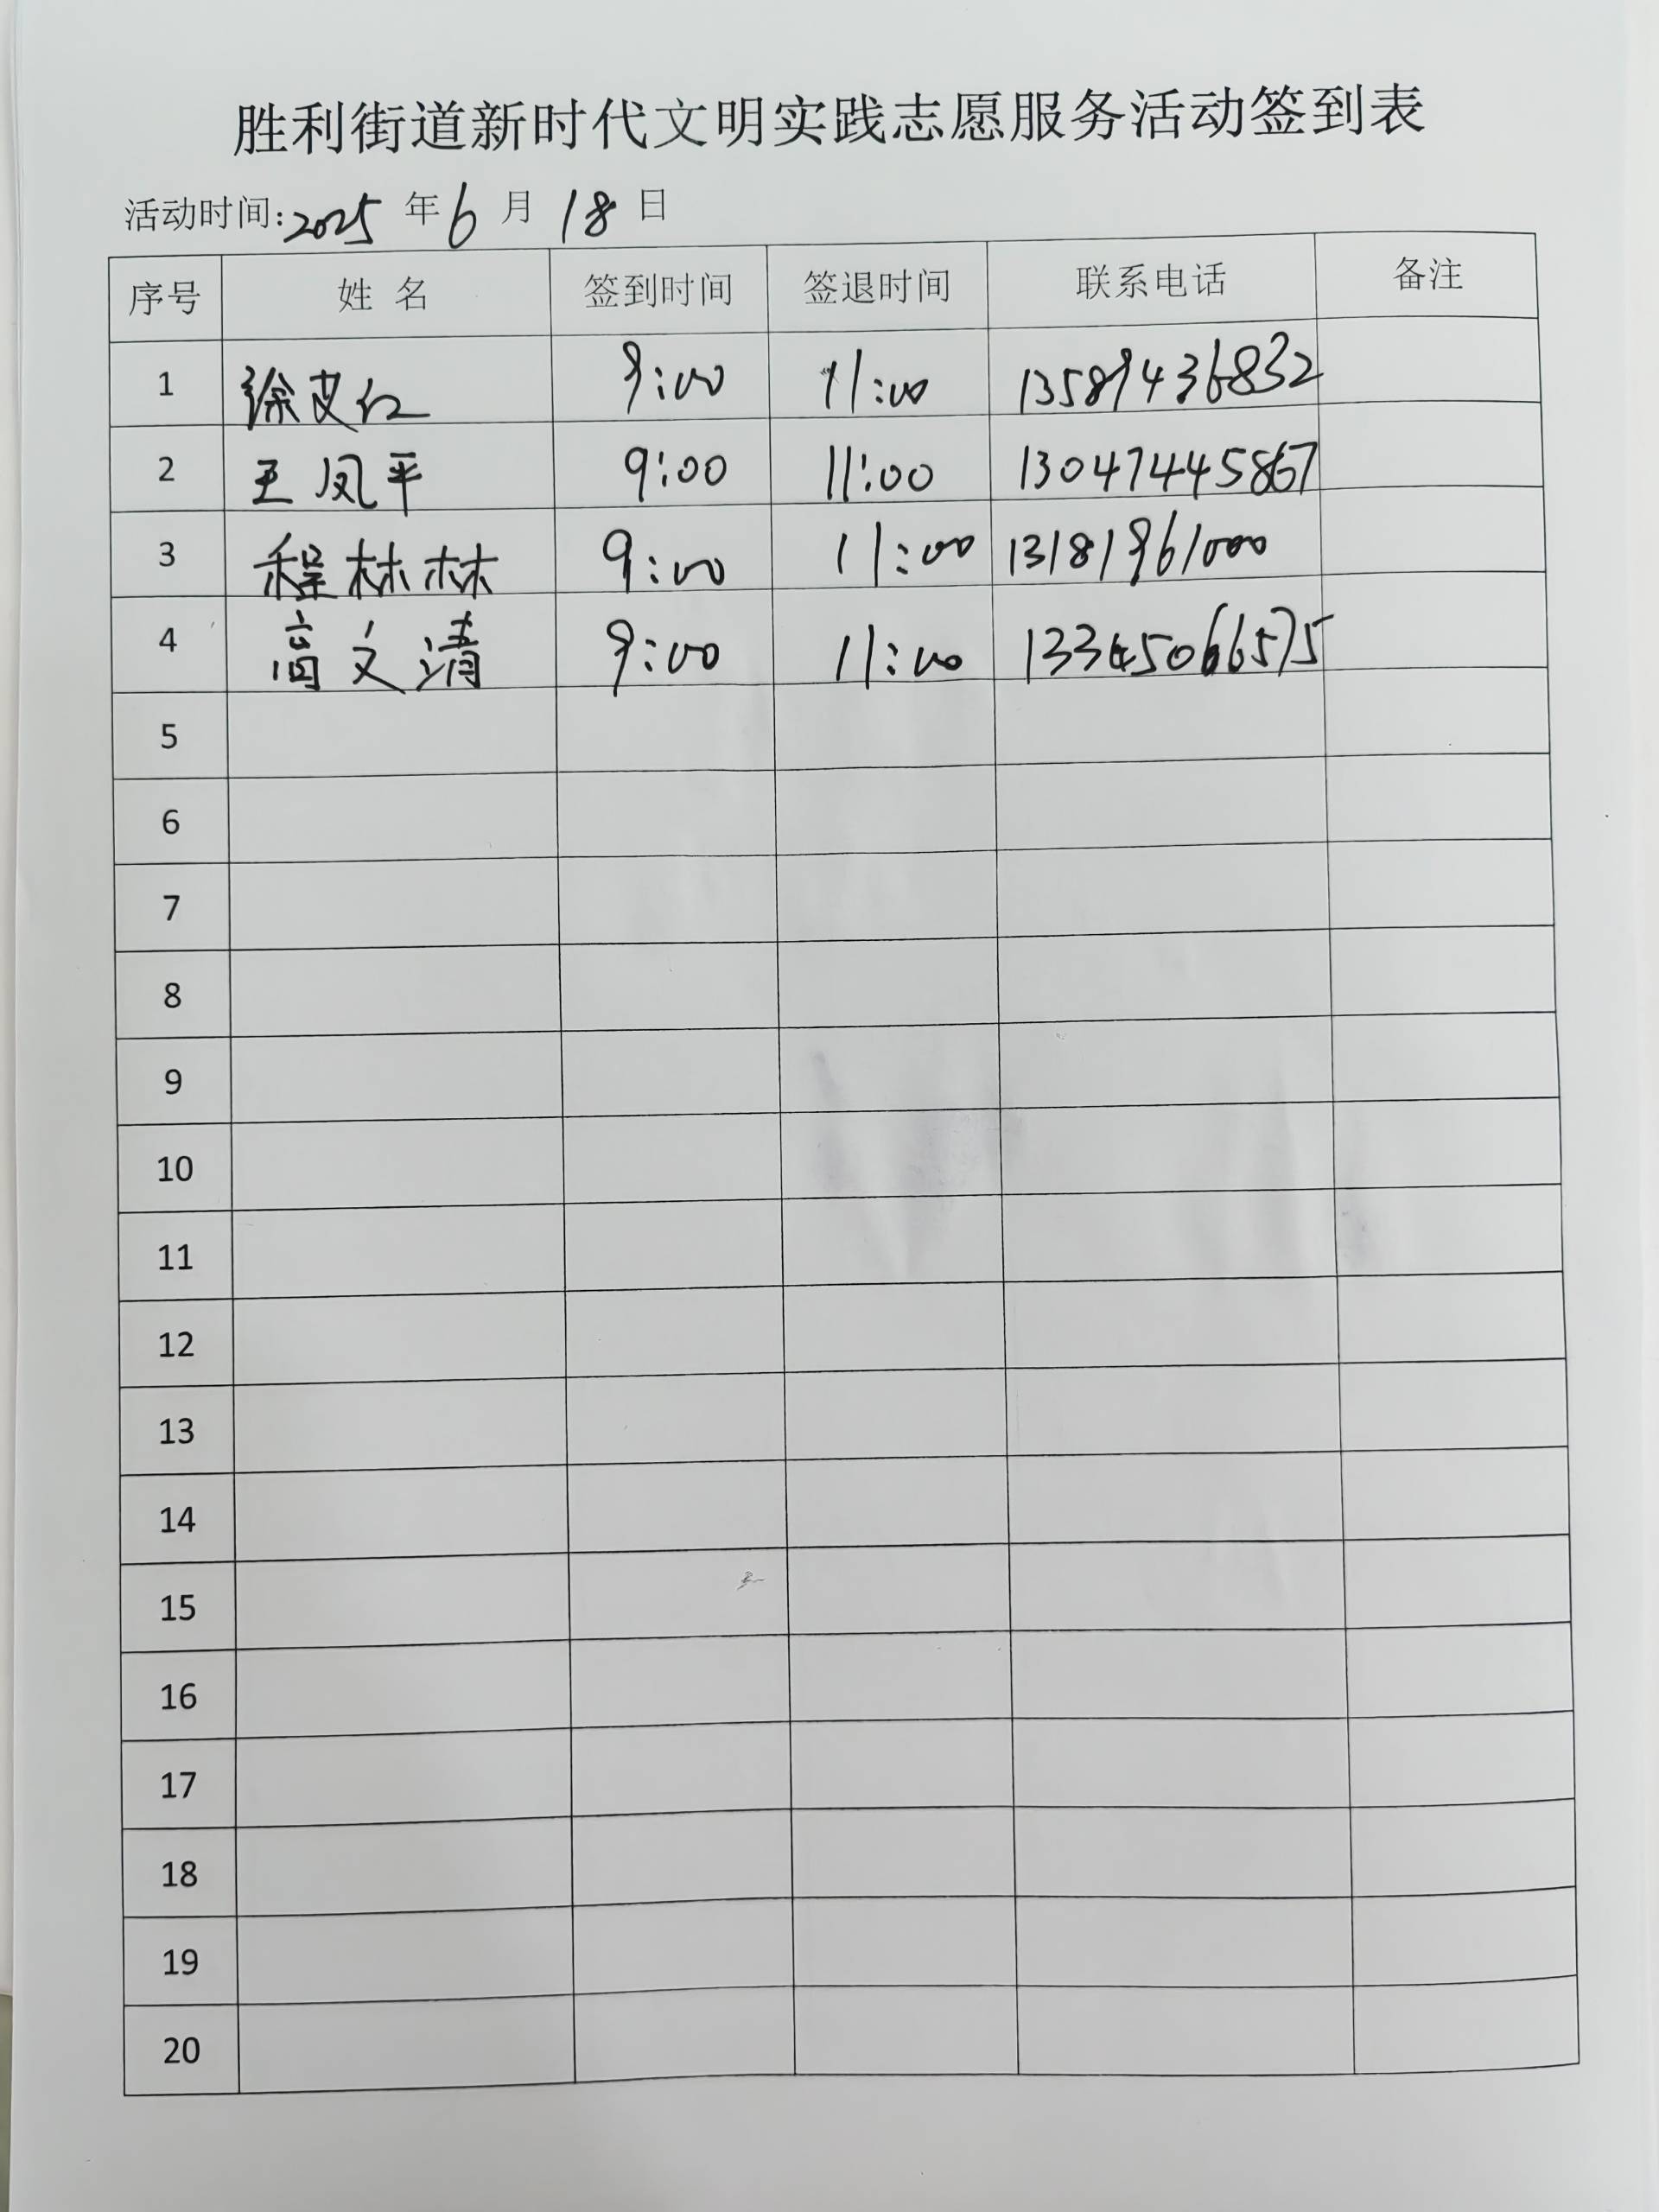 胜利街道新时代文明实践志愿服务活动签到表
活动时间:2025 年 6 月 18 日
序号 姓 名 签到时间 签退时间 联系电话 备注
1 徐艾红 9:00 11:00 13589436832
2 王凤平 9:00 11:00 13047445867
3 程林林 9:00 11:00 13181961000
4 高文清 9:00 11:00 13345066575
5
6
7
8
9
10
11
12
13
14
15
16
17
18
19
20